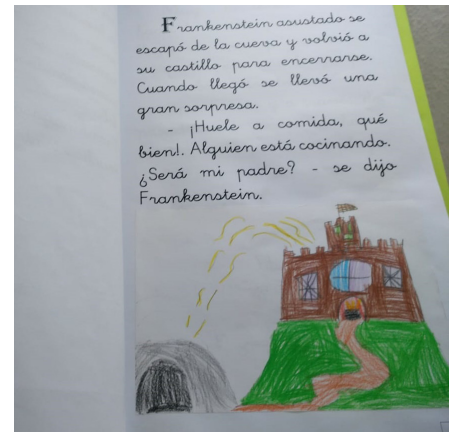 Frankenstein asustado se
escapó de la cueva y volvió a
su castillo para encerrarse.
Cuando llegó se llevó una
gran sorpresa.
- ¡Huele a comida, qué
bien!. Alguien está cocinando.
¿Será mi padre? - se dijo
Frankenstein.